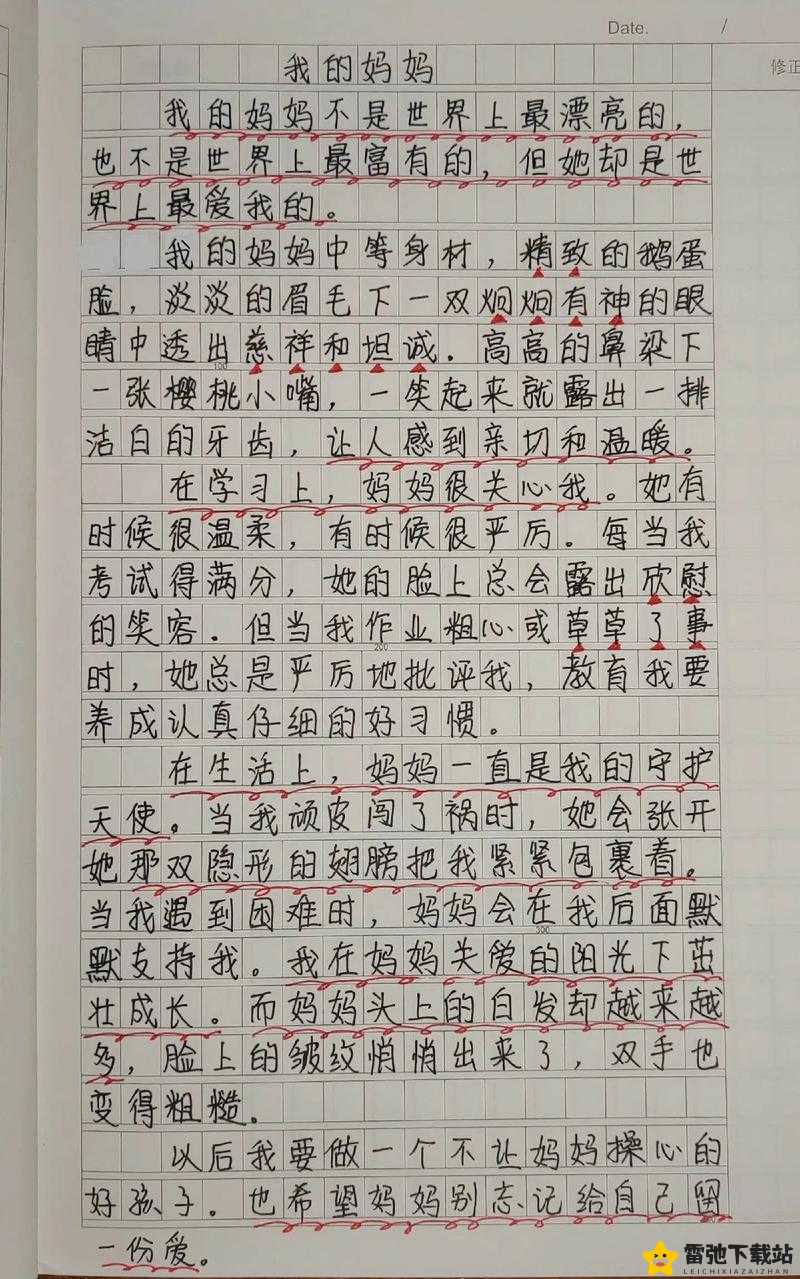 Date. /
修正
我的妈妈
我的妈妈不是世界上最漂亮的,
也不是世界上最富有的,但她却是世
界上最爱我的。
我的妈妈中等身材,精致的鹅蛋
脸,淡淡的眉毛下一双炯炯有神的眼
睛中透出慈祥和坦诚.高高的鼻梁下
100
一张樱桃小嘴,一笑起来就露出一排
洁白的牙齿,让人感到亲切和温暖。
在学习上,妈妈很关心我。她有
时候很温柔,有时候很严厉.每当我
考试得满分,她的脸上总会露出欣慰
的笑容.但当我作业粗心或草草了事
200
时,她总是严厉地批评我,教育我要
养成认真仔细的好习惯。
在生活上,妈妈一直是我的守护
天使。当我顽皮闯了祸时,她会张开
她那双隐形的翅膀把我紧紧包裹着。
当我遇到困难时,妈妈会在我后面默
300
默支持我。我在妈妈关爱的阳光下茁
壮成长。而妈妈头上的白发却越来越
多,脸上的皱纹悄悄出来了,双手也
变得粗糙。
以后我要做一个不让妈妈操心的
好孩子.也希望妈妈别忘记给自己留
一份爱。
雷弛下载站
LEICHIXIAZAIZHAN